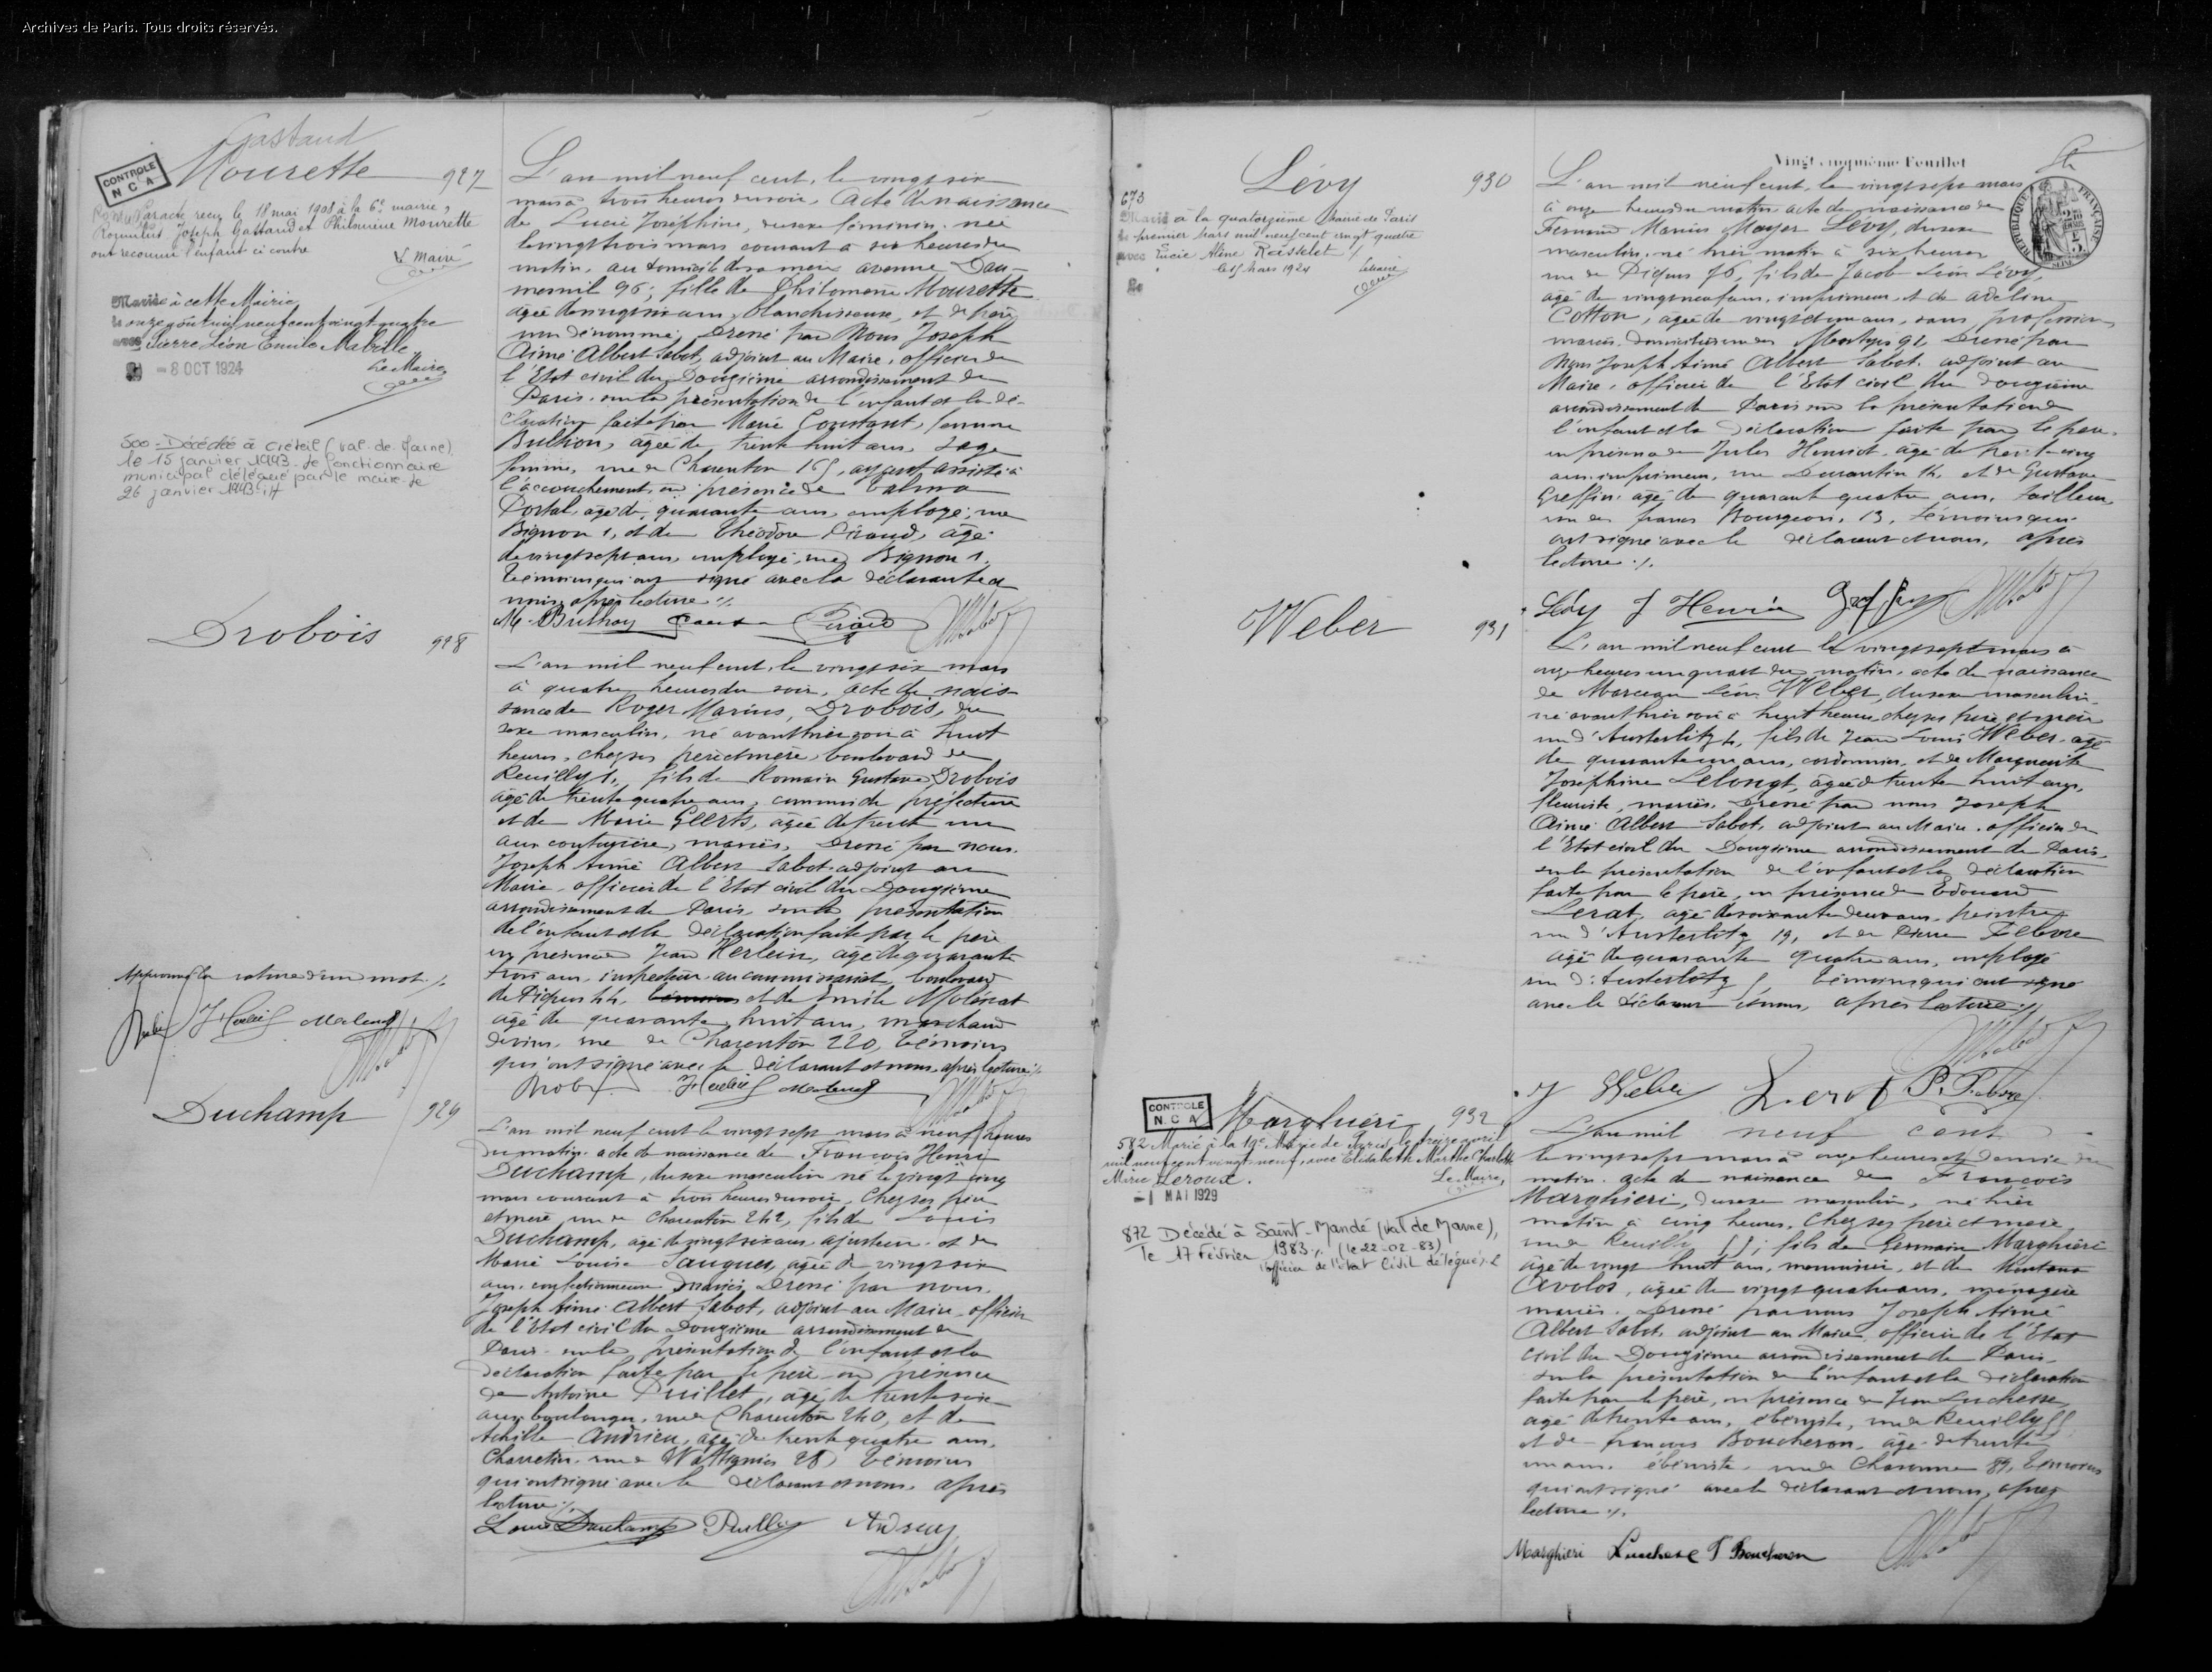 Archives de Paris. Tous droits réservés.
Gastaud
Mourette 927
CONTROLE
N C A
Par acte reçu le 18 mai 1908 à la 6e mairie,
Romulus Joseph Gastaud et Philomène Mourette
ont reconnu l'enfant ci contre
Le Maire
Mariée à cette Mairie
le onze août mil neuf cent vingt quatre
avec Pierre Léon Emile Mabille
- 8 OCT 1924
Le Maire
500 - Décédée à Créteil (Val-de-Marne)
le 15 janvier 1993. Le fonctionnaire
municipal délégué par le maire. Le
26 janvier 1993
L'an mil neuf cent, le vingt six
mars à trois heures du soir, Acte de naissance
de Lucie Joséphine, du sexe féminin, née
le vingt trois mars courant à six heures du
matin, au domicile de sa mère avenue Dau-
mesnil 96; fille de Philomène Mourette
âgée de vingt six ans, blanchisseuse, et de père
non dénommé. Dressé par Nous Joseph
Aimé Albert Sabot, adjoint au Maire, officier de
l'Etat civil du Douzième arrondissement de
Paris, sur la présentation de l'enfant et la dé-
claration faite par Marie Constant, femme
Bulhion, âgée de trente huit ans, sage
femme, rue de Charenton 165, ayant assisté à
l'accouchement en présence de
Portal, âgé de quarante ans, employé, rue
Bignon 1, et de Théodore Giraud, âgé
de vingt sept ans, employé, rue Bignon 1.
témoins qui ont signé avec la déclarante et
nous après lecture ./.
Drobois 928
L'an mil neuf cent, le vingt six mars
à quatre heures du soir, acte de nais-
sance de Roger Marius, Drobois, du
sexe masculin, né avant hier soir à huit
heures, chez ses père et mère, boulevard de
Reuilly 1, fils de Romain Gustave Drobois
âgé de trente quatre ans, commis de préfecture
et de Marie Geerts, âgée de trente un
ans couturière, mariés, Dressé par nous,
Joseph Aimé Albert Sabot adjoint au
Maire, officier de l'Etat civil du Douzième
arrondissement de Paris, sur la présentation
de l'enfant et la déclaration faite par le père
en présence de Jean Herlein, âgé de quarante
trois ans, inspecteur au commissariat, boulevard
de Picpus 44, témoins et de Emile
âgé de quarante huit ans, marchand
de vins, rue de Charenton 220, témoins
qui ont signé avec le déclarant et nous, après lecture ./.
Approuvé la rature d'un mot ./.
Duchamp 929
L'an mil neuf cent le vingt sept mars à neuf heures
du matin, acte de naissance de François Henri
Duchamp, du sexe masculin né le vingt cinq
mars courant à trois heures du soir, chez ses père
et mère, rue de Charenton 242, fils de Louis
Duchamp, âgé de vingt six ans, ajusteur, et de
Marie Louise Saugues, âgée de vingt six
ans, confectionneuse, mariés, Dressé par nous,
Joseph Aimé Albert Sabot, adjoint au Maire, officier
de l'Etat civil du Douzième arrondissement de
Paris sur la présentation de l'enfant et la
déclaration faite par le père en présence
de Antoine Puillet, âgé de trente six
ans boulanger, rue de Charenton 240, et de
Achille Andrieu, âgé de trente quatre ans,
Charretier, rue de Wattignies 28, témoins
qui ont signé avec le déclarant et nous après
lecture ./.
Louis Duchamp
Vingt cinquième Feuillet
RÉPUBLIQUE FRANÇAISE
Lévy 930
673
Marié à la quatorzième Mairie de Paris
le premier mars mil neuf cent vingt quatre
avec Lucie Aline Roisselet
L'an mil neuf cent, le vingt sept mars
à onze heures du matin acte de naissance de
Fernand Marius Mayer Lévy, du sexe
masculin, né hier matin à six heures
rue de Picpus 76, fils de Jacob Léon Lévy,
âgé de vingt neuf ans, imprimeur, et de Adeline
Cotton, âgée de vingt et un ans, sans profession,
mariés, domiciliés rue des Martyrs 91. Dressé par
Nous Joseph Aimé Albert Sabot, adjoint au
Maire, officier de l'Etat civil du Douzième
arrondissement de Paris sur la présentation de
l'enfant et la déclaration faite par le père,
en présence de Jules Henriot, âgé de trente cinq
ans, imprimeur, rue Durantin 14, et de Gustave
Greffin, âgé de quarante quatre ans, tailleur,
rue des francs Bourgeois, 13, témoins qui
ont signé avec le déclarant et nous, après
lecture ./.
Lévy
Weber 931
L'an mil neuf cent le vingt sept mars à
onze heures un quart du matin, acte de naissance
de Marceau Léon Weber, du sexe masculin,
né avant hier soir à huit heures, chez ses père et mère
rue d'Austerlitz 4, fils de Jean Louis Weber, âgé
de quarante un ans, cordonnier, et de Marguerite
Joséphine Lelongt, âgée de trente huit ans,
fleuriste, mariés. Dressé par nous Joseph
Aimé Albert Sabot, adjoint au Maire, officier de
l'Etat civil du Douzième arrondissement de Paris,
sur la présentation de l'enfant et la déclaration
faite par le père, en présence de Edouard
Lerat, âgé de soixante deux ans, peintre,
rue d'Austerlitz 19, et de Pierre
âgé de quarante quatre ans, employé
rue d'Austerlitz témoins qui ont signé
avec le déclarant et nous, après lecture ./.
J Weber Lerat
Marghiéri 932
CONTROLE
N C A
582 Marié à la 19e Mairie de Paris, le treize avril
mil neuf cent vingt neuf, avec Elisabeth Marthe Charlotte
Marie Leroux.
Le Maire,
- 1 MAI 1929
872 Décédé à Saint-Mandé (Val de Marne),
le 17 Février 1983 ./. (le 22-02-83)
l'officier de l'état civil délégué
L'an mil neuf cent
le vingt sept mars à onze heures et demie du
matin, acte de naissance de François
Marghieri, du sexe masculin, né hier
matin à cinq heures, chez ses père et mère,
rue de Reuilly 55; fils de Germain Marghiéri
âgé de vingt huit ans, menuisier, et de
Avolos, âgée de vingt quatre ans, ménagère
mariés. Dressé par nous Joseph Aimé
Albert Sabot, adjoint au Maire, officier de l'Etat
civil du Douzième arrondissement de Paris,
sur la présentation de l'enfant et la déclaration
faite par le père, en présence de Jean Luchesse,
âgé de trente ans, ébéniste, rue de Reuilly 55
et de françois Boucheron, âgé de trente
un ans, ébéniste, rue de Charonne 89, témoins
qui ont signé avec le déclarant et nous, après
lecture ./.
Marghieri Luchese F Boucheron